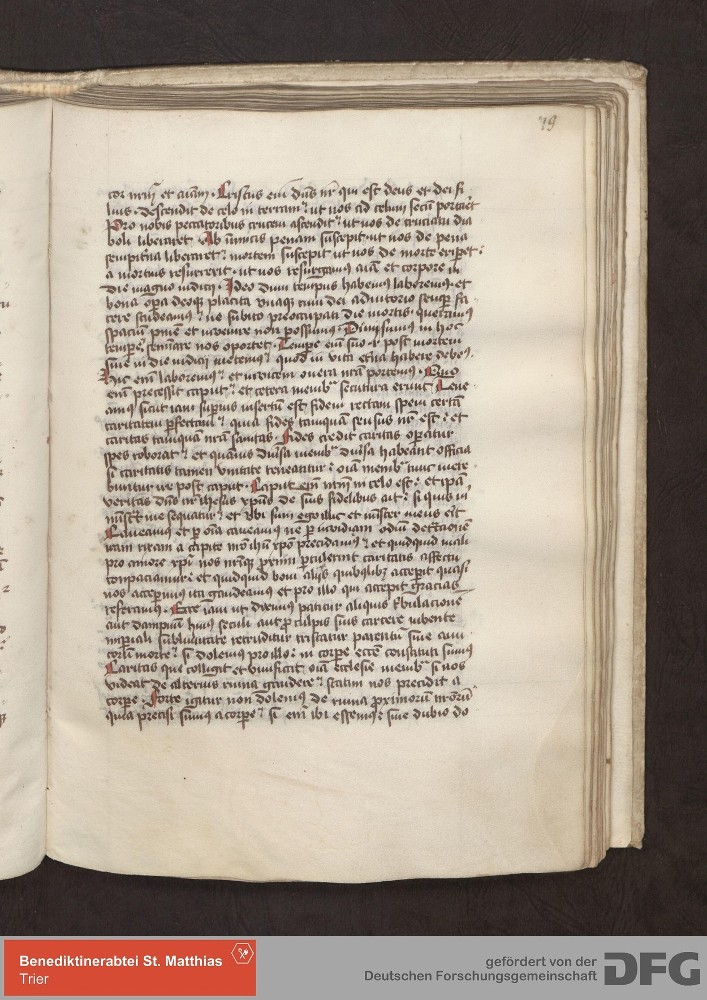 79
cor nr̄m et aīam. Cristus eni dn̄s nr̄ qui est deus et dei fi
lius. descendit de celo in terram ut nos ad celum secū portaret
Pro nobis peccatoribus crucem ascendit ut nos de cruciatu dia
boli liberaret. Ab inimicis penam suscepit. ut nos de pena
sempitna liberaret mortem suscepit ut nos de morte eriperet.
a mortuis resurrexit. ut nos resurgamus aīa et corpore in
die magno iudicii. Ideo dum tempus habemus laboremus. et
bona opa deoque placita unaque cum dei adiutorio semper fa
cere studeamus ne subito preoccupati die mortis. queramus
spacium pnie et invenire non possumus. Piissimus in hoc
tempe seminare nos oportet. Tempe eni suo post mortem
sive in die iudicii metemus quod in vita etna habere debemus.
Hic eni laboremus et invicem onera nrā portemus. Quo
eni precessit caput et cetera membra secutura erunt. Tene
amus sicut iam superius insertum est fidem rectam spem certā
caritatem perfectam quia fides tanquam sensus nr̄ est. et
caritas tanquam nrā sanitas. Fides credit caritas operatur
spes roborat et quamvis diversa membra diversa habeant officia
si caritatis tamen unitate teneantur. oīa membra tunc mere
buntur ire post caput. Caput eni nr̄m in celo est. et ipsa
veritas dn̄s nr̄ ihesus xp̄us de suis fidelibus ait. si quis m
ministret me sequatur et ubi sum ego illic et minister meus erit
Caveamus et per oīa caveamus ne per invidiam odium detractionē
iram rixam a capite nr̄o ihu xpo precidamur et quidquid mali
pro amore xpi nos nr̄ique proximi pertulerint caritatis affectu
compaciamur. et quidquid boni alius quibuslibet acceperit quasi
nos acceperimus ita gaudeamus et pro illo qui accepit gracias
referamus. Ecce iam ut diximus patitur aliquis tribulacionē
aut dampnum huius seculi aut pro culpis suis carcere iubente
imperiali sublimitate retruditur tristatur parentum sive ami
corum morte si dolemus pro illo in corpe eccle constituti sumus
Caritas que colligit et vivificat oīa Ecclesie membra si nos
videat de alterius ruina gaudere statim nos precidit a
corpe. Forte igitur non dolemus de ruina proximorum nr̄orū
quia precisi sumus a corpe si eni ibi essemus sine dubio do
Benediktinerabtei St. Matthias
Trier
gefördert von der
Deutschen Forschungsgemeinschaft
DFG